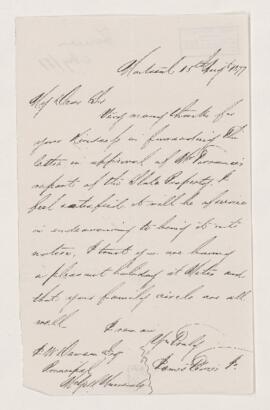 Montreal 15th Augt 1877
My Dear Sir
Very many thanks for
your kindness in forwarding the
letter in approval of Mr Torrance's
report of the Slate Property. I
feel satisfied it will be of service
in endeavouring to bring it into
notice. I trust you are having
a pleasant holiday at Metis and
that your family circle are all
well.
I am
Yrs Truly
James Ferrier Jr.
J. W. Dawson Esq
Principal
McGill University